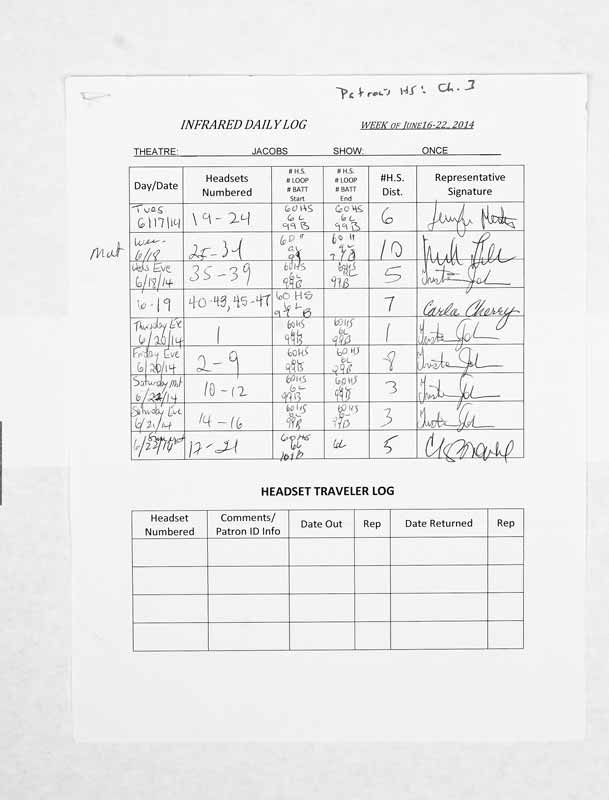 Patron's HS: Ch. 3
INFRARED DAILY LOG WEEK OF JUNE16-22, 2014
THEATRE: JACOBS SHOW: ONCE
Day/Date Headsets Numbered # H.S. # LOOP # BATT Start # H.S. # LOOP # BATT End #H.S. Dist. Representative Signature
Tues. 6/17/14 19-24 60HS 6L 99B 60HS 6L 99B 6
Mat Wed. 6/18 25-34 60" 60" 10
Weds Eve 6/18/14 35-39 60HS 6L 99B 60HS 6L 99B 5
6-19 40-43, 45-47 60 HS 6L 99 B 7 Carla Cherry
Thursday Eve 6/20/14 1 60HS 6L 99B 60HS 6L 99B 1
Friday Eve 6/20/14 2-9 60HS 6L 99B 60HS 6L 99B 8
Saturday Mat 6/21/14 10-12 60HS 6L 99B 60HS 6L 99B 3
Saturday Eve 6/21/14 14-16 60HS 6L 99B 60HS 6L 99B 3
17-21 60HS 6L 101B 6L 5
HEADSET TRAVELER LOG
Headset Numbered Comments/ Patron ID Info Date Out Rep Date Returned Rep